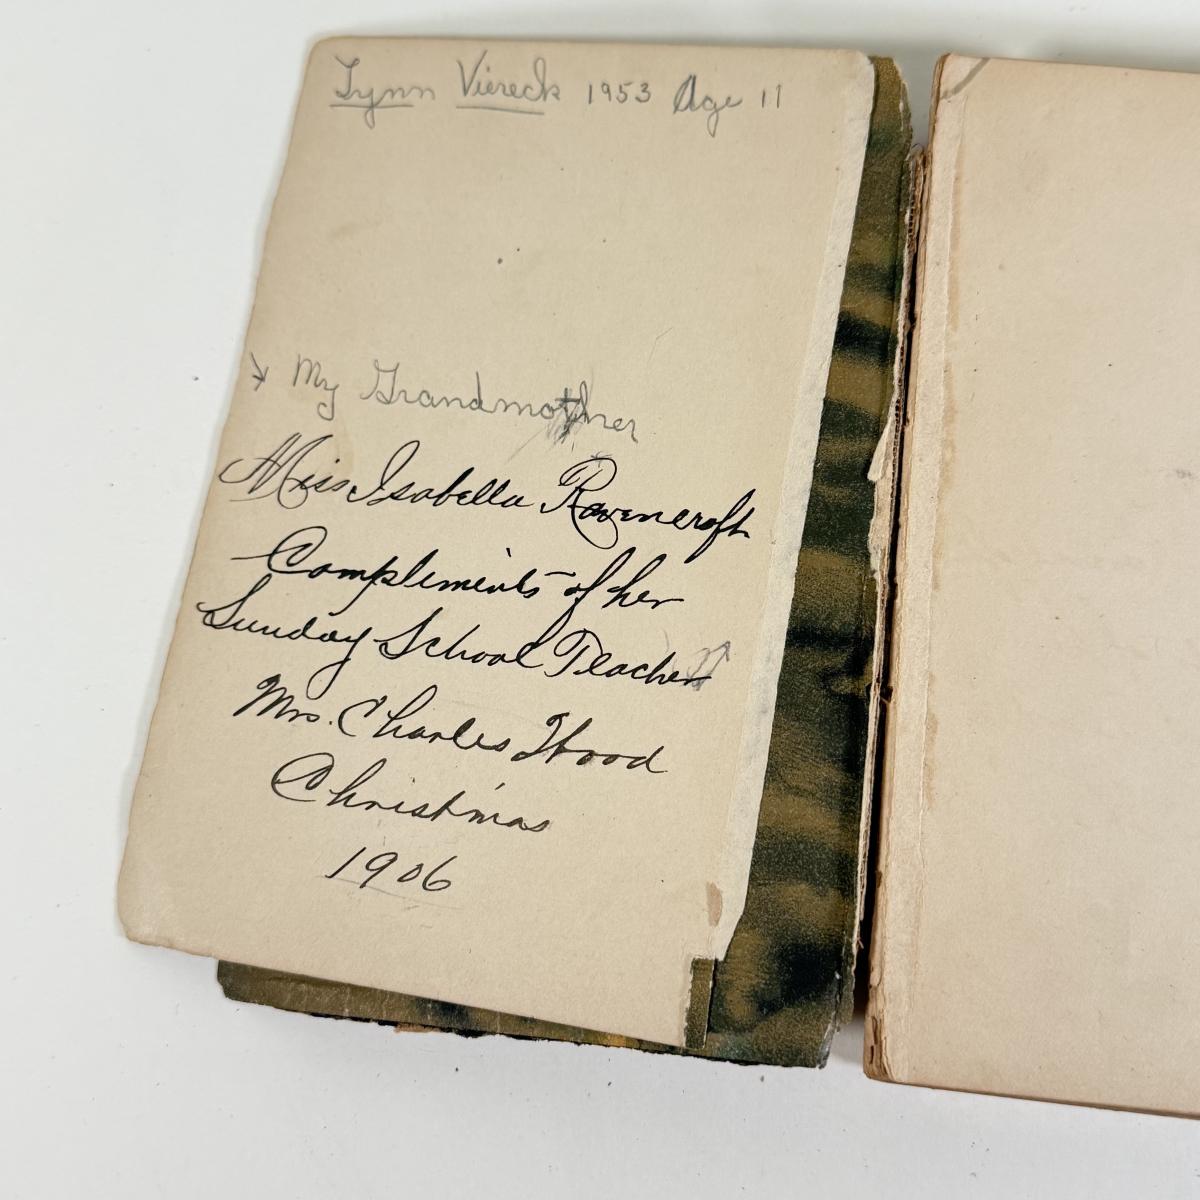 Lynn Viereck 1953 Age 11
→ My Grandmother
Miss Isabella Ravencroft
Compliments of her
Sunday School Teacher
Mrs. Charles Wood
Christmas
1906